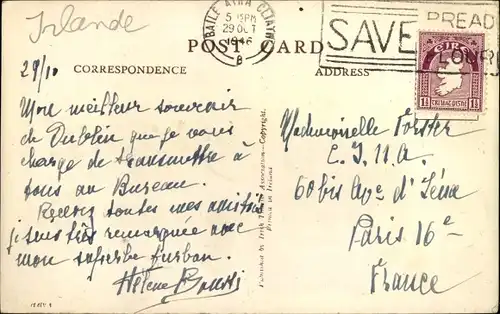 Irlande
BAILE ÁTHA CLIATH
5 15PM
29 OCT
1946
B
SAVE BREAD
FLOUR
POST CARD
ÉIRE
1½
29/10
CORRESPONDENCE
ADDRESS
Mon meilleur souvenir
de Dublin que je vous
charge de transmettre à
tous au Bureau.
Recevez toutes mes amitiés
je suis très remarquée avec
mon superbe turban.
Hélène
Published by Irish Association—Copyright.
Printed in Ireland
Mademoiselle Forster
60 bis Ave. d'Iéna
Paris 16e
France